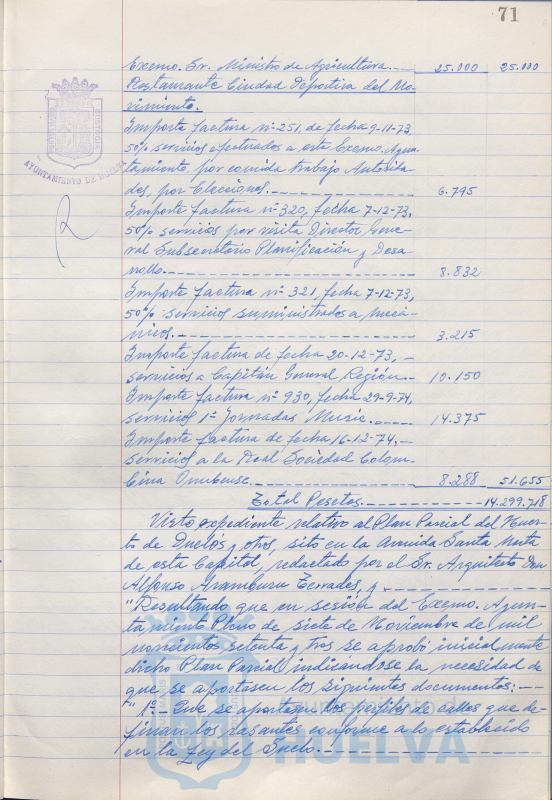 71
Excmo. Sr. Ministro de Agricultura.— 25.000 25.000
Restaurante Ciudad Deportiva del Mo-
vimiento.
Importe factura nº 251, de fecha 9-11-73,
50% servicios efectuados a este Excmo. Ayun-
tamiento, por comida trabajo Autorida-
des, por Elecciones.— 6.795
Importe factura nº 320, fecha 7-12-73,
50% servicios por visita Director Gene-
ral Subsecretario Planificación y Desa-
rrollo.— 8.832
Importe factura nº 321, fecha 7-12-73,
50% servicios suministrados a mecá-
nicos.— 3.215
Importe factura de fecha 20-12-73,—
servicios a Capitán General Región.— 10.150
Importe factura nº 930, fecha 29-9-74,
servicios 1ª Jornadas Munic.— 14.375
Importe factura de fecha 16-12-74.—
servicios a la Real Sociedad Colom-
bina Onubense.— 8.288 51.655
Total Pesetas.— 14.299.718
Visto expediente relativo al Plan Parcial del Huer-
to de Duclós y otros, sito en la Avenida Santa Marta
de esta Capital, redactado por el Sr. Arquitecto Don
Alfonso Aramburu Terrades, y —
"Resultando que en sesión del Excmo. Ayun-
tamiento Pleno de siete de Noviembre de mil
novecientos setenta y tres se aprobó inicialmente
dicho Plan Parcial indicándose la necesidad de
que se aportasen los siguientes documentos:—
" 1º.— Que se aportasen los perfiles de calles que de-
finan las rasantes conforme a lo establecido
en la Ley del Suelo.—
AYUNTAMIENTO DE HUELVA
HUELVA